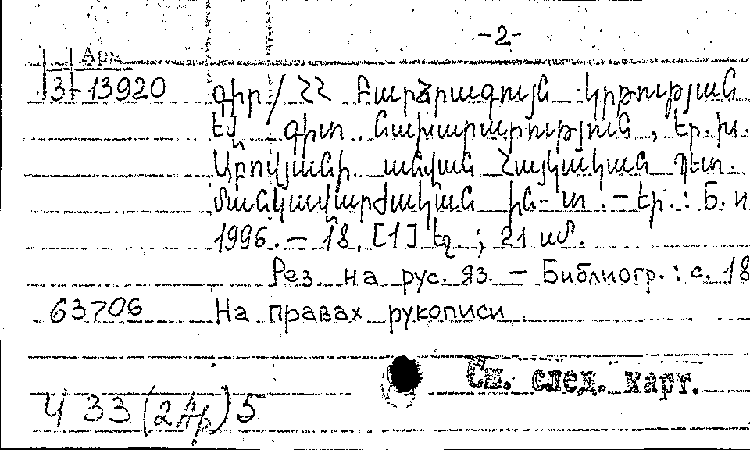 -2-
Арм
3-13920 գիր / ՀՀ Բարձրագույն կրթության
եվ գիտ. նախարարություն, Եր. խ.
Աբովյանի անվան Հայկական պետ.
մանկավարժական ին-տ. - Եր. : Б. и
1996. - 18, [1] էջ ; 21 սմ.
Рез. на рус. яз. - Библиогр.: с. 18
63706 На правах рукописи
См. след. карт.
Ч 33(2Ар)5